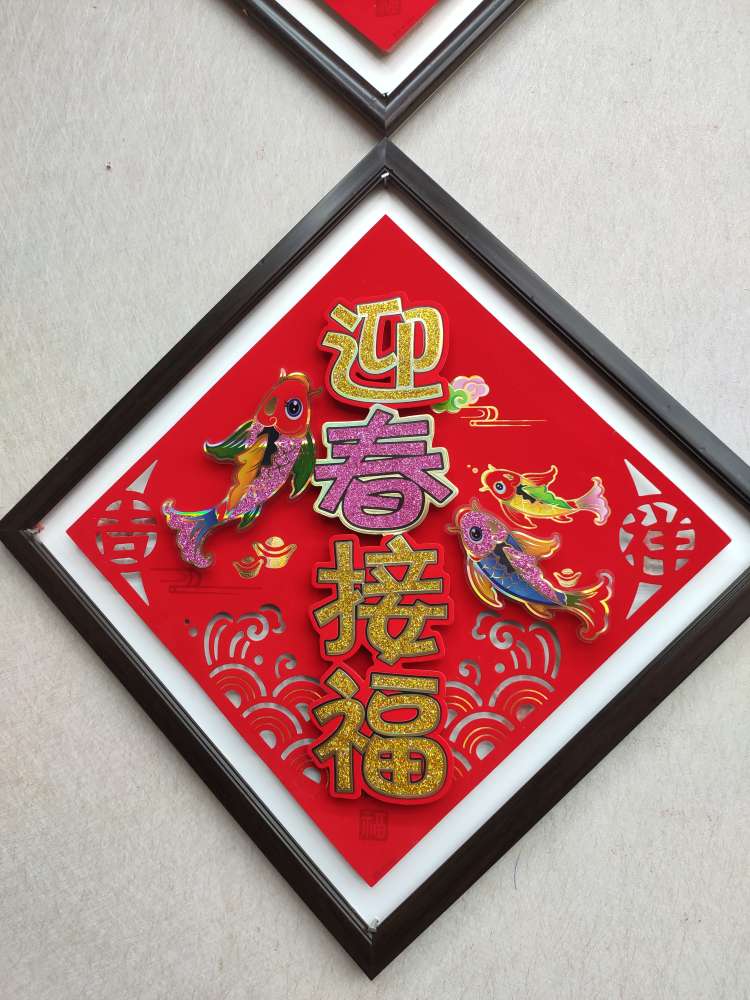 迎
春
接
福
吉
祥
福